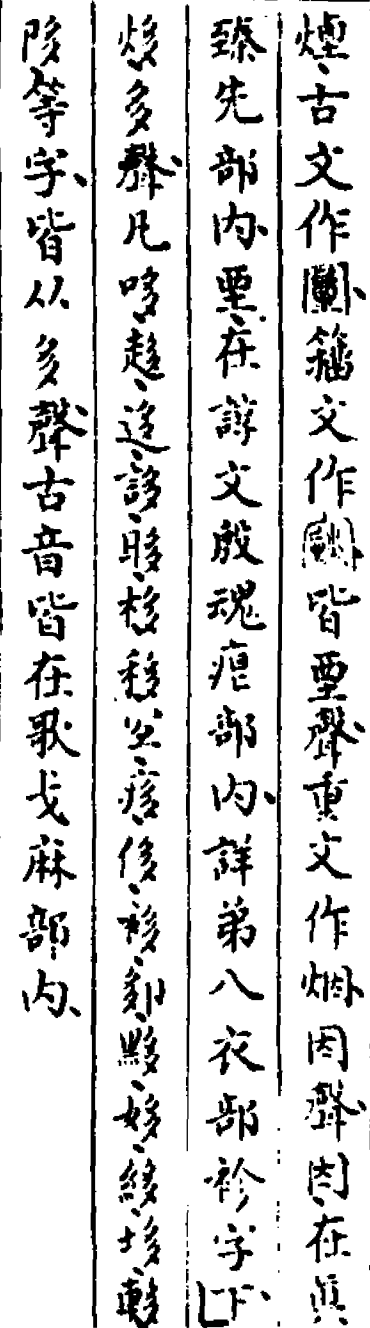 煙、古文作𡨾、籒文作𤑇、皆垔聲重文作烟、因聲因、在眞
臻先部内、垔、在諄文殷魂痕部内、詳弟八衣部袗字下、
㶴、多聲、凡哆、趍、迻、誃、眵、栘、移、宐、痑、侈、袳、𩛻、黟、姼、𦂥、垑、𨌅
陊、等字、皆从多聲古音皆在歌戈麻部内、